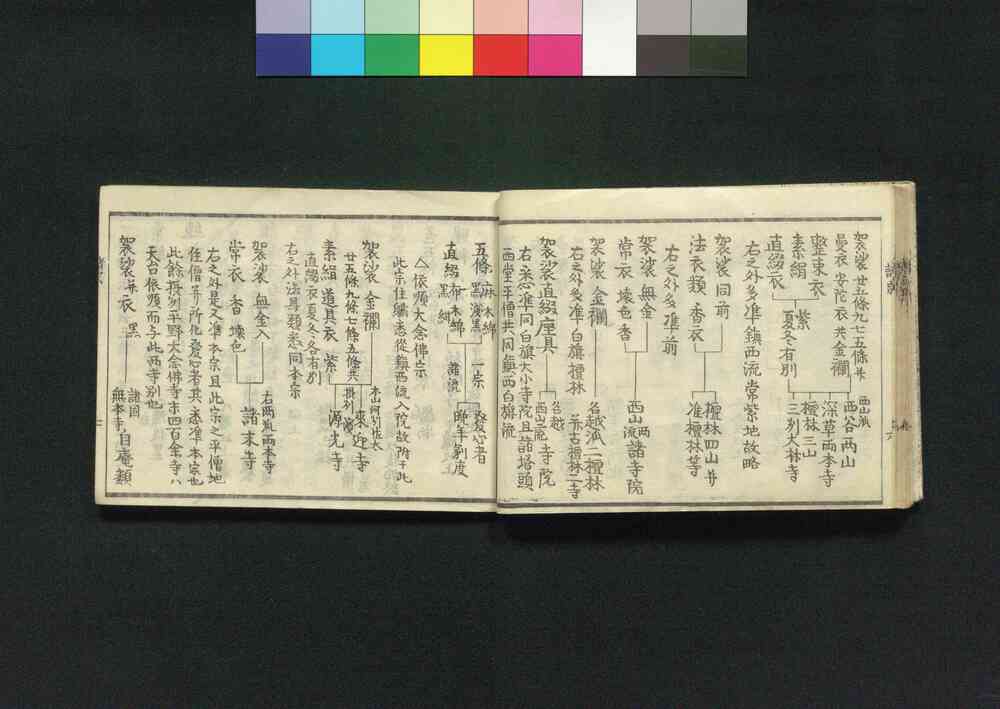 袈裟 廿五條九七五條并
曼衣 安陀衣 共金襴
西山流
西谷兩山
深草兩本寺
整束衣
素絹
直綴衣
紫
夏冬有別
檀林三山
三列大林寺
右之外多準鎮西流常紫地故略
袈裟 同前
法衣類 香衣
檀林四山并
准檀林等
右之外多準前
袈裟 無金
常衣 壊色香
西山兩流諸寺院
袈裟 金襴
名越流二檀林
并古檀林二寺
右之外多準白旗檀林
袈裟直綴座具
名越
西山流
寺院
右悉准同白旗大小寺院且諸塔頭
西堂平僧共同鎮西白旗流
五條 黒 淺黒 麻 木綿
直綴 黒 布 木綿 紬
一宗
諸流
發心者
師年剃度
△依頼大念佛宗
此宗住職悉從鎮西流入院故附于此
袈裟 金襴
廿五條九條七條五條共
素絹 道具衣 紫
直綴衣夏冬各有別
來迎寺
源光寺
右之外法具類悉同本宗
袈裟 無金入
常衣 香 壊色
右兩流兩本寺
諸末寺
右之外是又准本宗且此宗之平僧地
住僧并所化發心者其悉準本宗也
此餘摂列平野大念佛寺末四百余寺八
天台依頼而与此兩寺別也
袈裟并衣 黒
諸国
無本寺自庵類